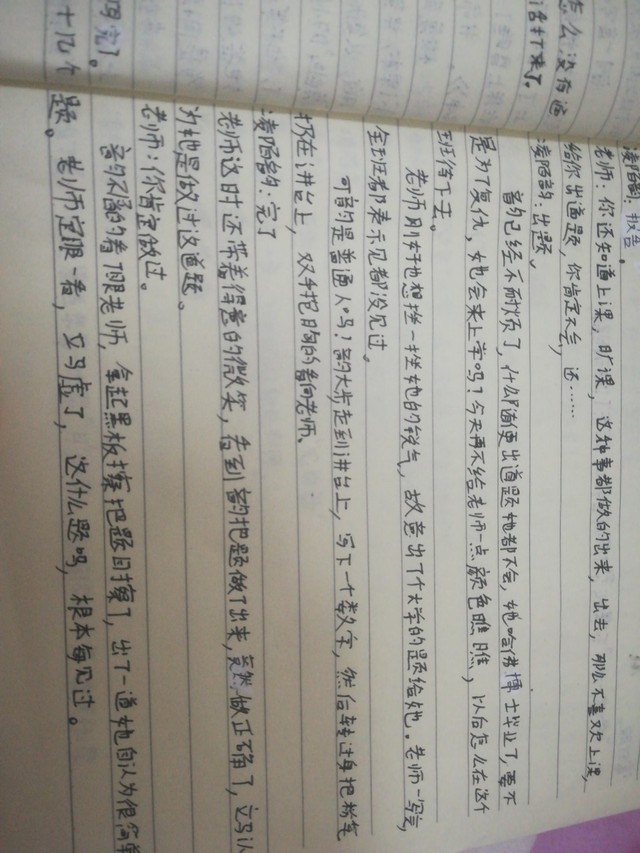 怎么没有
话打来了。
完了。
十几个
凌陌韵：报告。
老师：你还知道上课，旷课，这种事都做的出来，出去，那么不喜欢上课，
给你出道题，你肯定不会，还……
凌陌韵：出题。
韵已经不耐烦了，什么随便出道题她都不会，她哈佛博士毕业了，要不
是为了复仇，她会来上学吗？今天再不给老师一点颜色瞧瞧，以后怎么在这个
班待下去。
老师刚好也想挫一挫她的锐气，故意出了个大学的题给她。老师一写完，
全班都表示见都没见过。
可韵是普通人吗？韵大步走到讲台上，写下一个数字，然后转过身把粉笔
扔在讲台上，双手抱胸的看向老师。
凌陌韵：完了
老师这时还带着得意的微笑，看到韵把题做了出来，竟然做正确了，立马认
为她是做过这道题。
老师：你肯定做过。
韵不屑的看了眼老师，拿起黑板擦把题目擦了，出了一道她自认为很简单
题。老师定眼一看，立马虚了，这什么题吗，根本每见过。